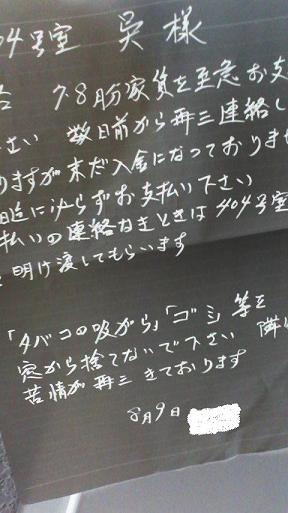 04号室 呉様
7.8月分家賃を至急お支
さい 数日前から再三連絡し
りますが未だ入金になっておりませ
日迄に必らずお支払い下さい
払いの連絡なきときは404号室
明け渡してもらいます
「タバコの吸がら」「ゴミ」等を
窓から捨てないで下さい 隣
苦情が再三きております
8月9日